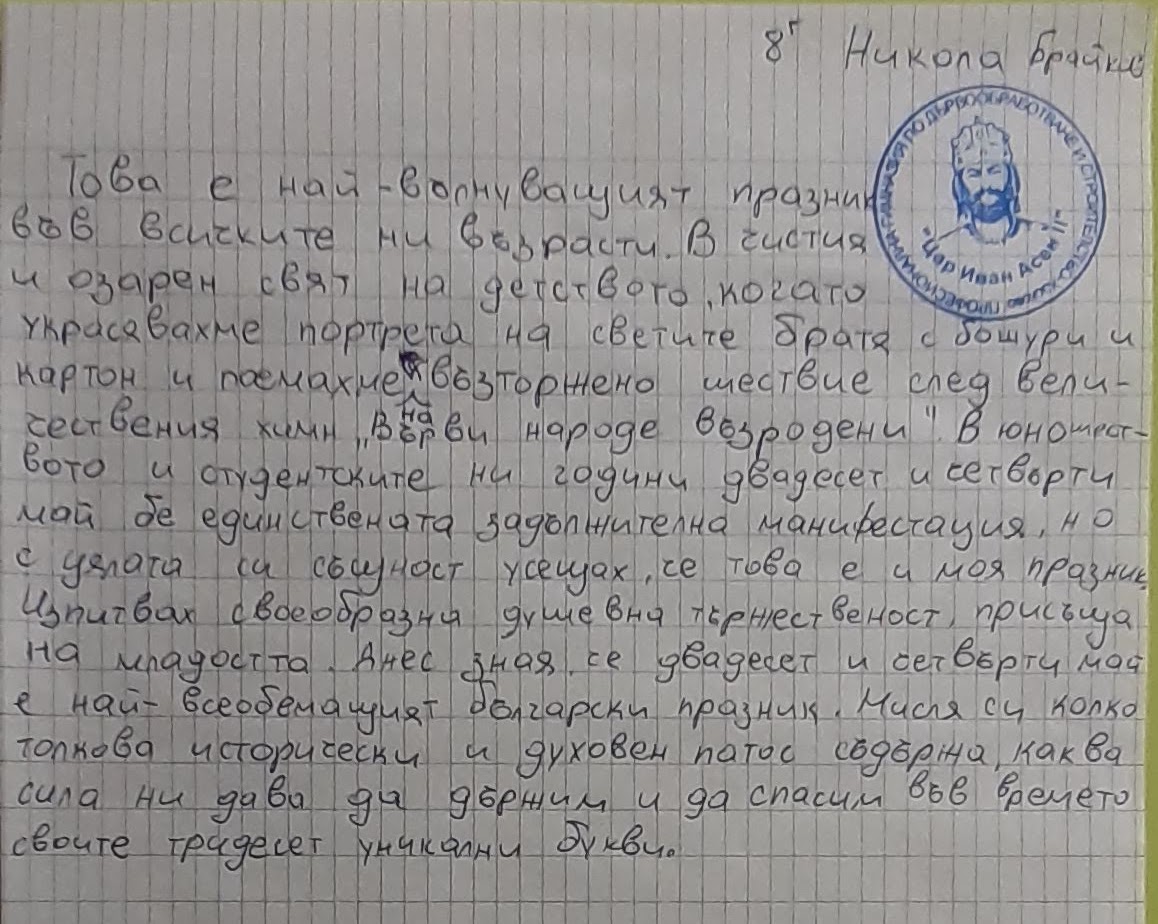 8г Никола Брайков
ПРОФЕСИОНАЛНА ГИМНАЗИЯ ПО ДЪРВООБРАБОТВАНЕ И СТРОИТЕЛСТВО
"Цар Иван Асен II"
Това е най-волнуващият празник
във всичките ни възрасти. В чистия
и озарен свят на детството, когато
украсявахме портрета на светите братя с божури и
картон и поемахме възторжено шествие след вели-
чествения химн „Върви народе възродени". В юношест-
на
вото и студентските ни години двадесет и четвърти
май бе единствената задължителна манифестация, но
с цялата си същност усещах, че това е и моя празник.
Изпитвах своеобразна душевна тържественост, присъща
на младостта. Днес зная, че двадесет и четвърти май
е най-всеобемащият български празник. Мисля си колко
толкова исторически и духовен патос съдържа, каква
сила ни дава да държим и да спасим във времето
своите тридесет уникални букви.